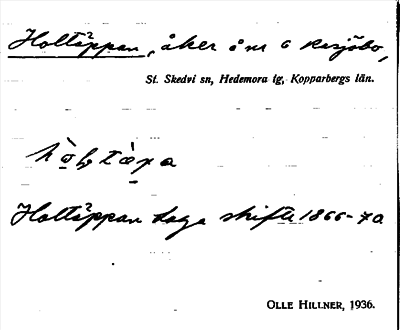 Holtäppan, åker å nr 6 Resjöbo,
St. Skedvi sn, Hedemora tg, Kopparbergs län.
Holtäppan laga skifte 1866-70
OLLE HILLNER, 1936.